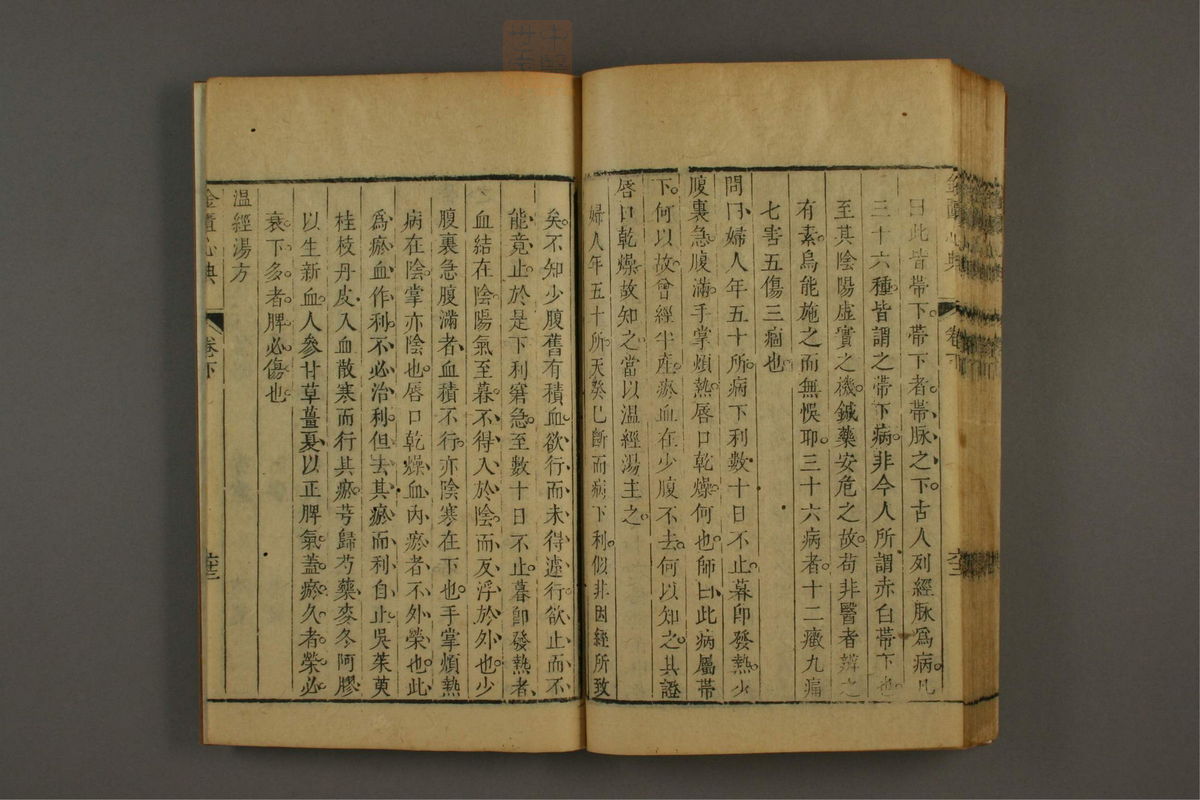 曰此皆帶下。帶下者。帶脉之下。古人列經脉爲病。凡
三十六種。皆謂之帶下病。非今人所謂赤白帶下也。
至其陰陽虛實之機。鍼藥安危之故。苟非醫者辨之
有素。烏能施之而無悞耶。三十六病者。十二癥九痛
七害五傷三痼也
問曰婦人年五十所。病下利數十日不止。暮卽發熱。少
腹裏急。腹滿。手掌煩熱。唇口乾燥。何也。師曰此病屬帶
下。何以故。曾經半產。瘀血在少腹不去。何以知之。其證
唇口乾燥。故知之。當以温經湯主之。
婦人年五十所。天癸已斷而病下利。似非因經所致
矣。不知少腹舊有積血。欲行而未得遽行。欲止而不
能竟止。於是下利窘急。至數十日不止。暮卽發熱者、
血結在陰。陽氣至暮。不得入於陰。而反浮於外也。少
腹裏急腹滿者。血積不行。亦陰寒在下也。手掌煩熱
病在陰。掌亦陰也。唇口乾燥。血內瘀者。不外榮也。此
爲瘀血作利。不必治利。但去其瘀而利自止。吳茱萸
桂枝丹皮、入血散寒而行其瘀。芎歸芍藥麥冬阿膠
以生新血。人參甘草薑夏。以正脾氣。蓋瘀久者。榮必
衰。下多者。脾必傷也。
温經湯方
金匱心典
卷下